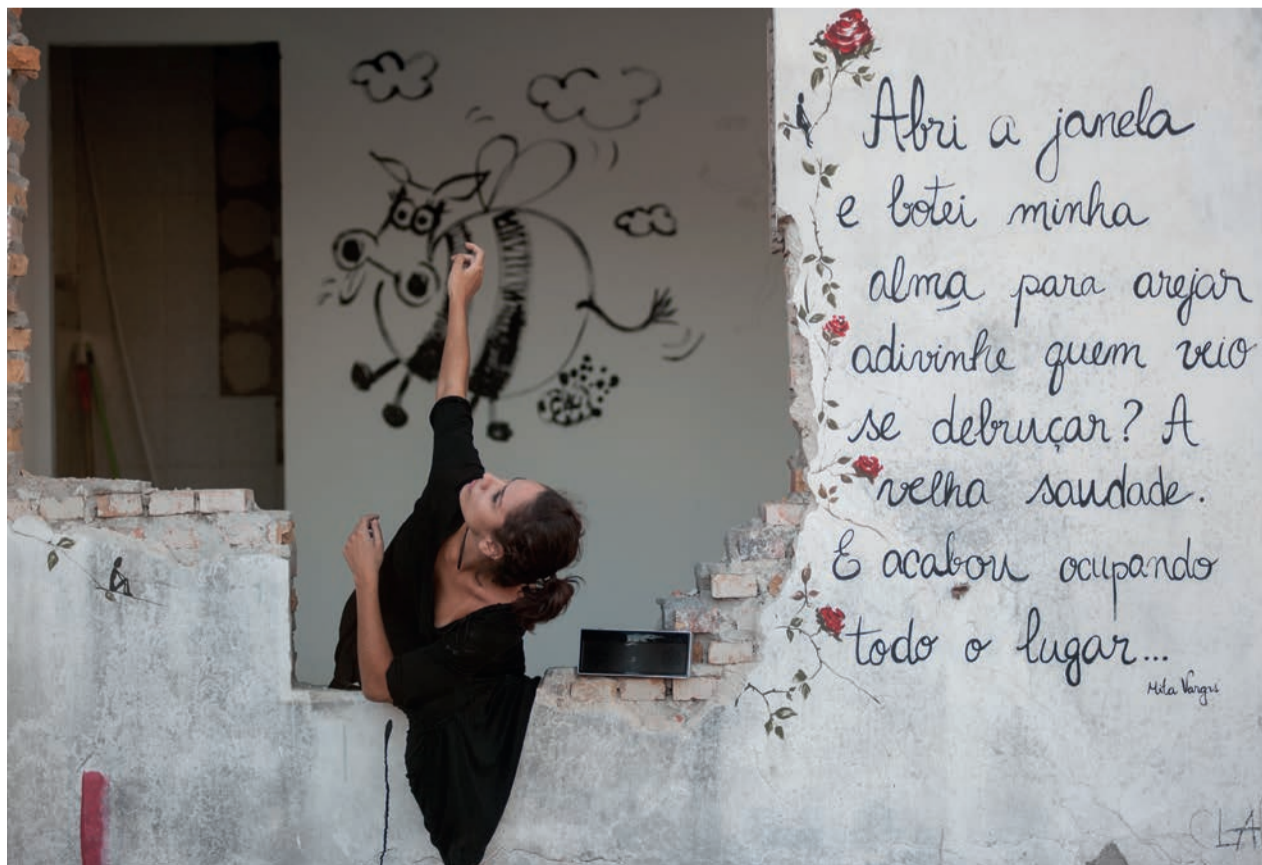 Abri a janela
e botei minha
alma para arejar
adivinhe quem veio
se debruçar? A
velha saudade.
E acabou ocupando
todo o lugar...
CLA